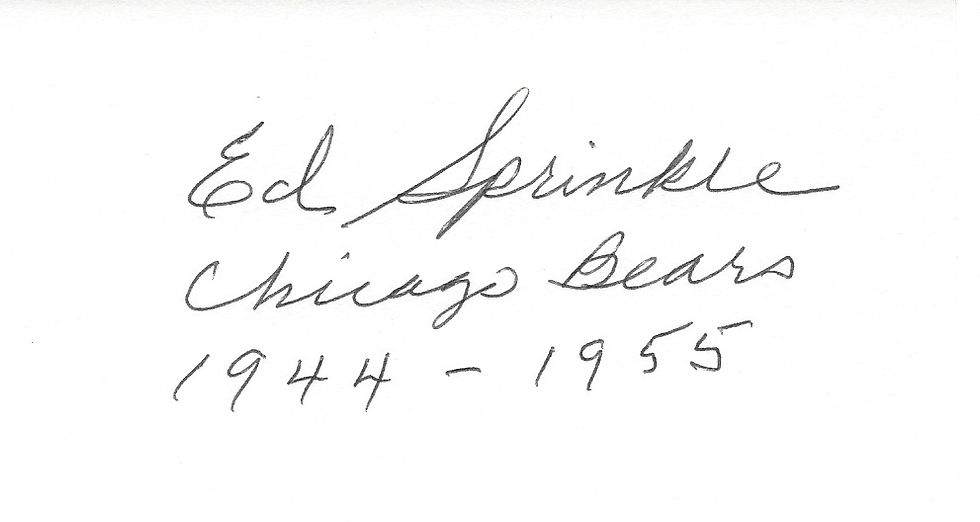 Ed Sprinkle
Chicago Bears
1944 - 1955